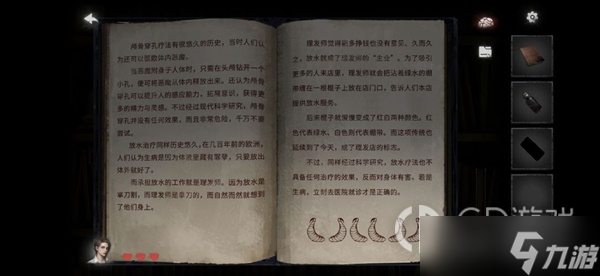 颅骨穿孔疗法有很悠久的历史，当时人们认
为还可以驱散体内恶魔。
当恶魔附身于人体时，只需在头颅钻开一个
小孔，便可将恶魔从体内释放出来。还认为颅骨
穿孔可以提升人的感应能力、拓展意识，获得更
多的精力与灵感。不过经过现代科学研究，颅骨
穿孔并没有任何效果，而且非常危险，千万不要
尝试。
放水治疗同样历史悠久，在几百年前的欧洲，
人们认为生病是因为体液里藏有罪孽，只要放出
体外就好了。
而承担放水的工作就是理发师。因为放水是
拿刀割，而理发师是拿刀的，而自然而然就想到
了他们身上。
理发师觉得能多挣钱也没有意见。久而久
之，放水就成了理发店的“主业”。为了吸引
更多的人来店里，理发师就会把沾有绿水的绷
带缠在一根棍子上放在店门口，告诉人们本店
提供放水服务。
后来棍子就慢慢变成了红白两种颜色。红
色代表绿水，白色则代表绷带。而这项传统也
延续到了今天，成了理发店的标志。
不过，同样经过科学研究，放水疗法也不
具备任何治疗的效果，反而对身体有害。若是
生病，立刻去医院就诊才是正确的。
游戏
九游